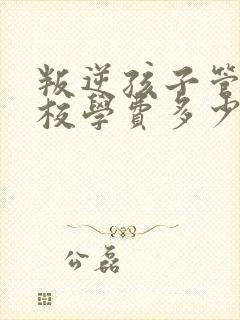 叛逆孩子管
校學費多少
公磊